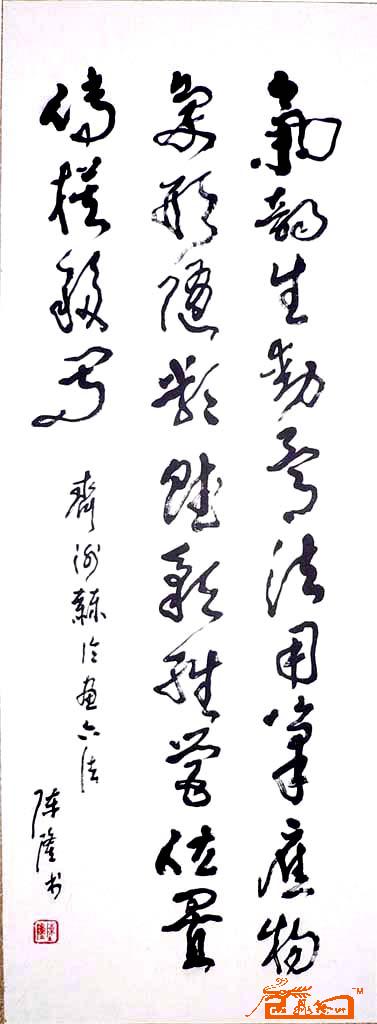 氣韻生動骨法用筆應物
象形隨類賦彩經營位置
傳模移寫
齊謝赫論畫六法
陳隆书
TM